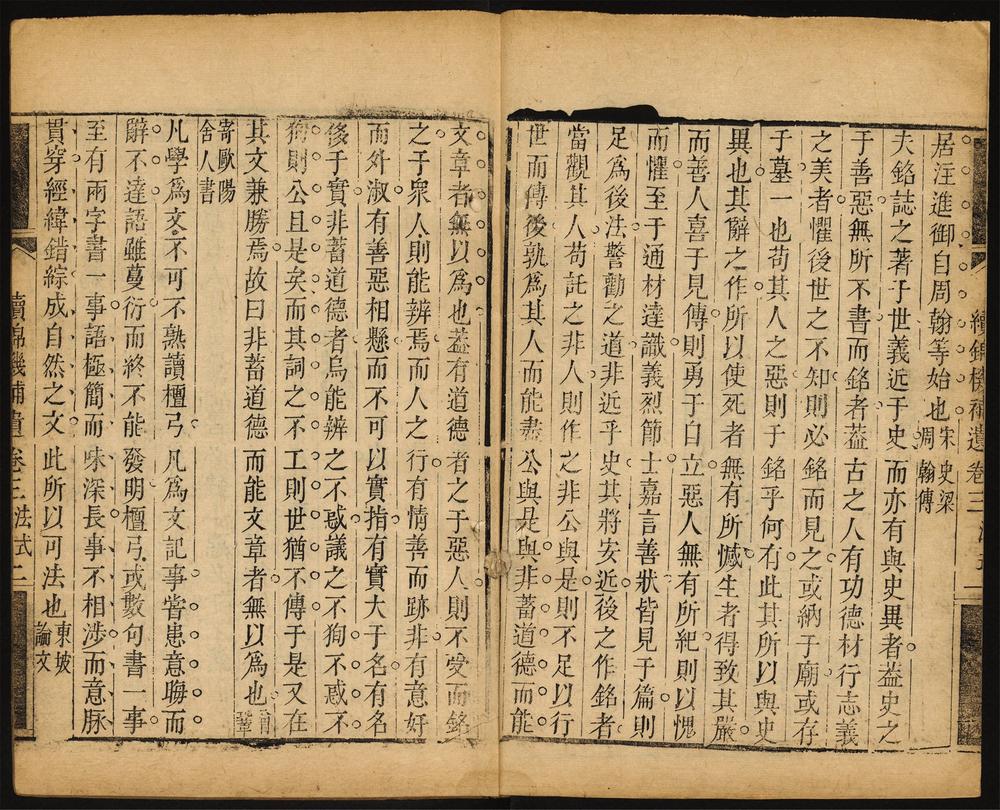 續錦機補遺 卷三
居注進御自周翰等始也宋史梁周翰傳
夫銘誌之著于世義近于史而亦有與史異者葢史之
于善惡無所不書而銘者葢古之人有功德材行志義
之美者懼後世之不知則必銘而見之或納于廟或存
于墓一也苟其人之惡則于銘乎何有此其所以與史
異也其辭之作所以使死者無有所憾生者得致其嚴
而善人喜于見傳則勇于自立惡人無有所紀則以愧
而懼至于通材達識義烈節士嘉言善狀皆見于篇則
足爲後法警勸之道非近乎史其將安近後之作銘者
當觀其人苟託之非人則作之非公與是則不足以行
世而傳後孰爲其人而能盡公與是與非蓄道德而能
文章者無以爲也葢有道德者之于惡人則不受而銘
之于衆人則能辨焉而人之行有情善而跡非有意奸
而外淑有善惡相懸而不可以實指有實大于名有名
侈于實非蓄道德者烏能辨之不惑議之不狥不惑不
狥則公且是矣而其詞之不工則世猶不傳于是又在
其文兼勝焉故曰非蓄道德而能文章者無以爲也曾鞏
寄歐陽舍人書
凡學爲文不可不熟讀檀弓凡爲文記事嘗患意晦而
辭不達語雖蔓衍而終不能發明檀弓或數句書一事
至有兩字書一事語極簡而味深長事不相涉而意脈
貫穿經緯錯綜成自然之文此所以可法也東坡論文
續錦機補遺 卷三 法式 二